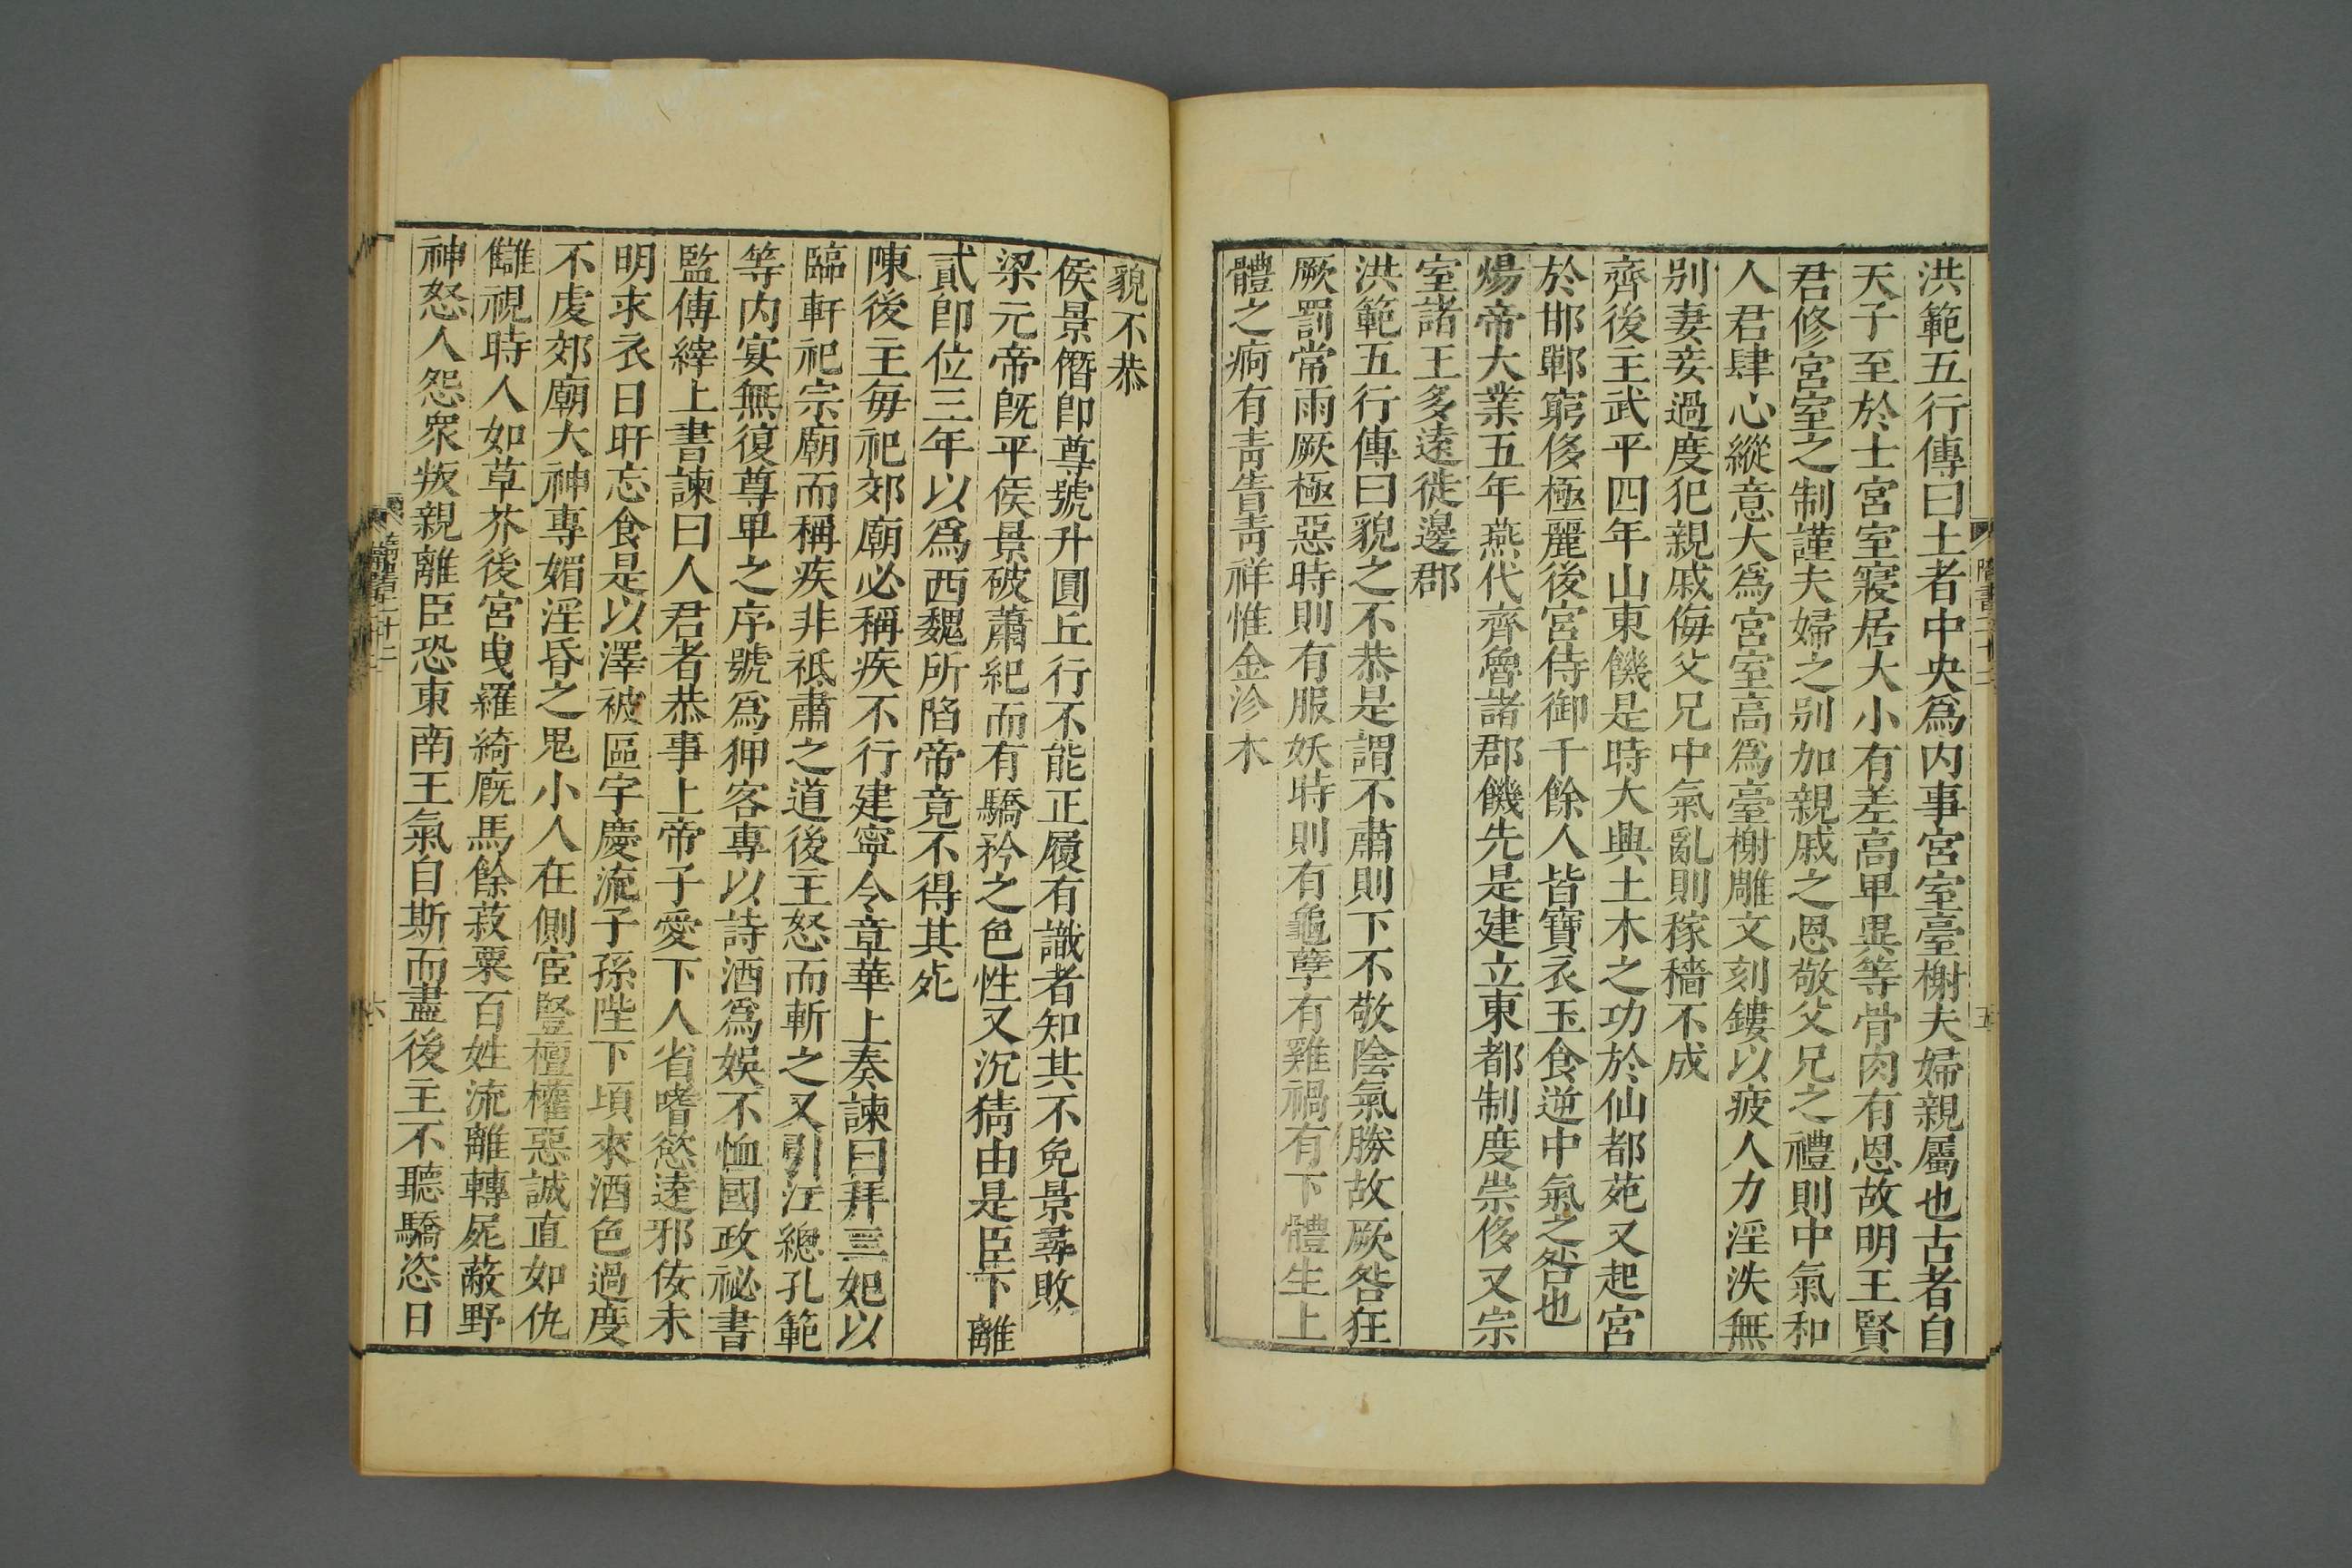 洪範五行傳曰土者中央爲內事宮室臺榭夫婦親屬也古者自
天子至於士宮室寢居大小有差高卑異等骨肉有恩故明王賢
君修宮室之制謹夫婦之别加親戚之恩敬父兄之禮則中氣和
人君肆心縱意大爲宮室高爲臺榭雕文刻鏤以疲人力淫泆無
别妻妾過度犯親戚侮父兄中氣亂則稼穡不成
齊後主武平四年山東饑是時大興土木之功於仙都苑又起宮
於邯鄲窮侈極麗後宮侍御千餘人皆寶衣玉食逆中氣之咎也
煬帝大業五年燕代齊魯諸郡饑先是建立東都制度崇侈又宗
室諸王多遠徙邊郡
洪範五行傳曰貌之不恭是謂不肅則下不敬陰氣勝故厥咎狂
厥罰常雨厥極惡時則有服妖時則有龜孽有雞禍有下體生上
體之痾有青眚青祥惟金沴木
隋書二十二
五
貌不恭
侯景僭即尊號升圓丘行不能正履有識者知其不免景尋敗
梁元帝旣平侯景破蕭紀而有驕矜之色性又沉猜由是臣下離
貳即位三年以爲西魏所陷帝竟不得其死
陳後主每祀郊廟必稱疾不行建寧令章華上奏諫曰拜三妃以
臨軒祀宗廟而稱疾非祗肅之道後主怒而斬之又引江總孔範
等內宴無復尊卑之序號爲狎客專以詩酒爲娛不恤國政祕書
監傅縡上書諫曰人君者恭事上帝子愛下人省嗜慾遠邪佞未
明求衣日旰忘食是以澤被區宇慶流子孫陛下頃來酒色過度
不虔郊廟大神專媚淫昏之鬼小人在側宦豎擅權惡誠直如仇
讎視時人如草芥後宮曳羅綺廐馬餘菽粟百姓流離轉屍蔽野
神怒人怨衆叛親離臣恐東南王氣自斯而盡後主不聽驕恣日
隋書二十二
六